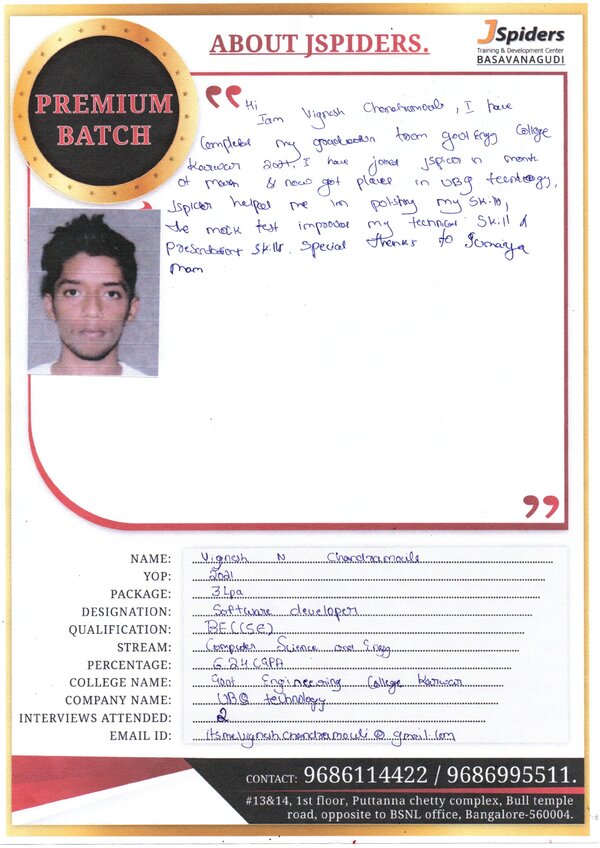 ABOUT JSPIDERS.
JSpiders
Training & Development Center
BASAVANAGUDI
PREMIUM
BATCH
Hi
Iam Vignesh Chandramouli, I have
Completed my graduation from govt Engg College
Karwar 2021, I have joined Jspider in month
of march & now got placed in UBQ technology,
Jspider helped me in polishing my skills,
the mock test improved my technical skill &
presentation skills. Special thanks to Sumaiya
mam
NAME: Vignesh N Chandramouli
YOP: 2021
PACKAGE: 3 Lpa
DESIGNATION: Software developer
QUALIFICATION: BE(CSE)
STREAM: Computer Science and Engg
PERCENTAGE: 6.24 CGPA
COLLEGE NAME: Govt Engineering College karwar
COMPANY NAME: UBQ technology
INTERVIEWS ATTENDED: 2
EMAIL ID: itsmevignesh.chandramouli@gmail.com
CONTACT: 9686114422 / 9686995511.
#13&14, 1st floor, Puttanna chetty complex, Bull temple
road, opposite to BSNL office, Bangalore-560004.